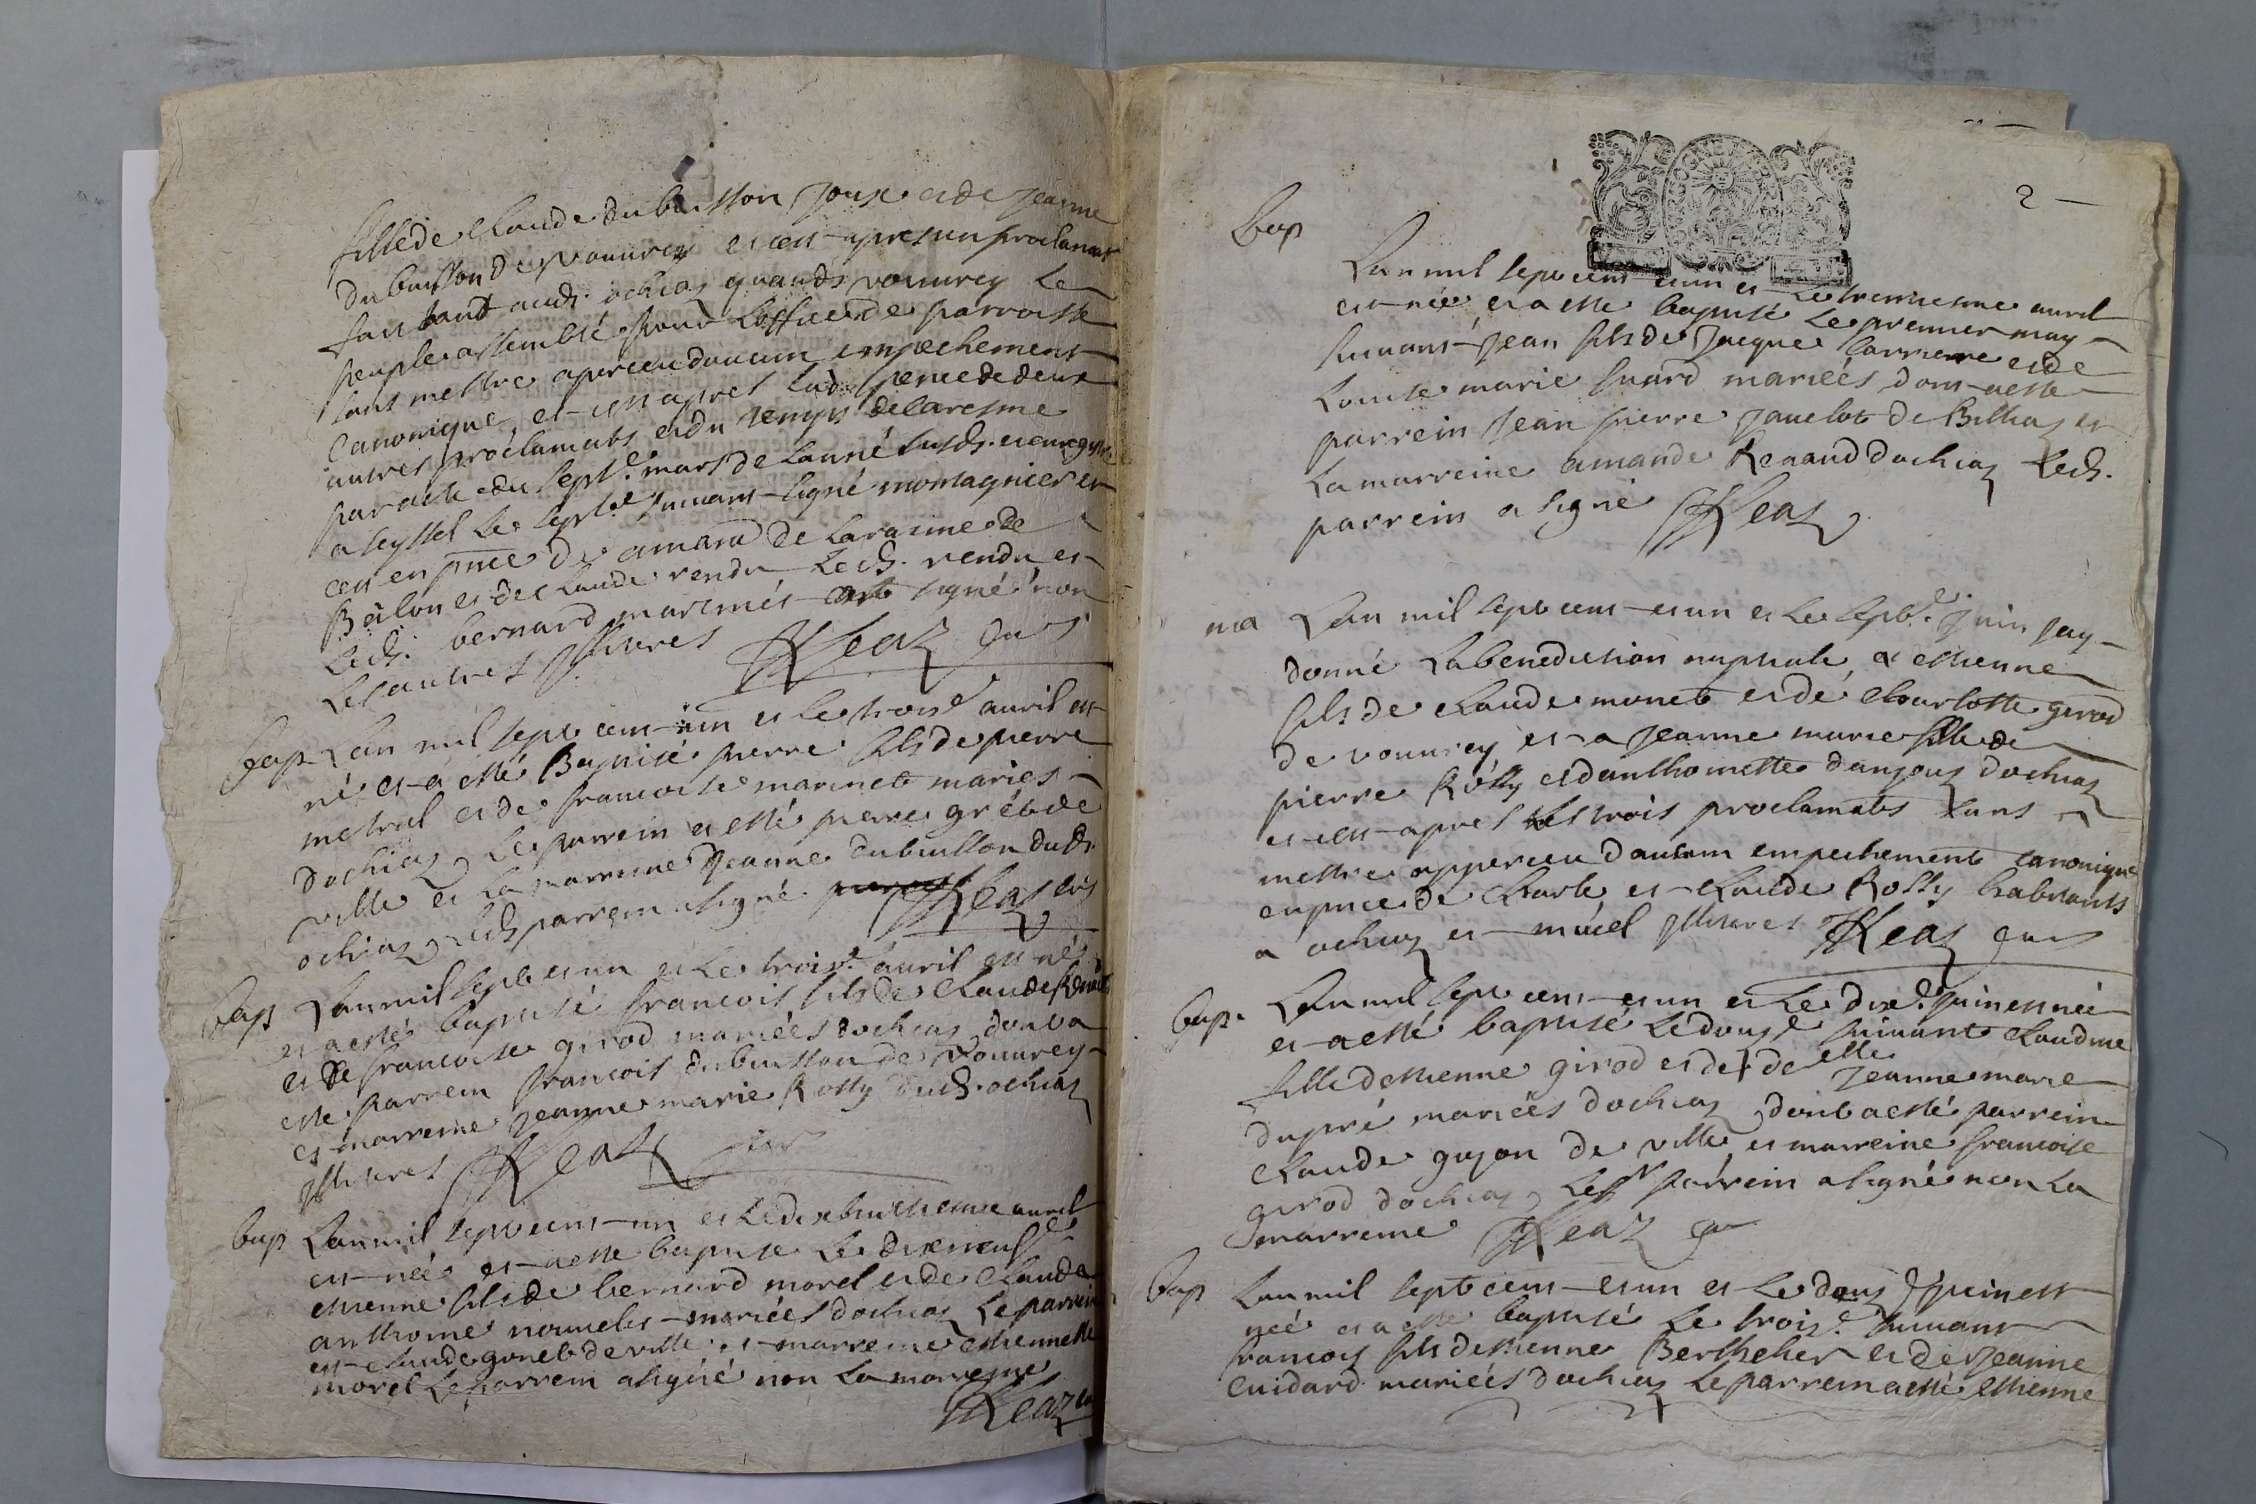 fille de Claude du buisson Joux et de Jeanne
du buisson de vouvrey et ce apres un proclamat
fait tant aud. ochiaz quaud. vouvrey le
peuple assemblé pour loffice de parroisse
sans mettre aperceu daucun empechement
canonique et ce apres lad. de deux
autres proclamats et du temps de caresme
par acte du sept.e mars de lanné susd. et enregistré
a seyssel le sept.e suivant signé montagnier et
ce en pnce de amand de la raime de
Balon et de Claude rendu lecd. rendu et
lecd. bernard mariniés ont signé non
les autres illiteres JKeaz cur
bap Lan mil sept cens un et le trois.e avril est
né et a esté Baptisé pierre fils de pierre
metral et de francoise marinet mariés
dochiaz le parrein a esté pierre grét de
ville et la marreine Jeanne du buisson dud.
ochiaz led. parrein a signé JKeaz cur
bap Lan mil sept et un et le trois.e avril est né
et a esté baptisé francois fils de Claude Renaud
et de francoise girod mariées dochiaz dont a
esté parrein francois du buisson de vouvrey
et marreine Jeanne marie Rossy dud. ochiaz
illiteres JKeaz cur
bap Lan mil sept cens un et le dixhuictieme avril
est née et a esté baptisé le dixneuf.e
estienne fils de bernard morel et de Claude
anthoine nouvelet mariées dochiaz le parrein
est claude gonet de ville et marreine estiennette
morel le parrein a signé non la marreine
JKeaz cu
2
bap
Lan mil sept cens et un et le trentiesme avril
est née et a esté baptisé le premier may
suivant Jean fils de Jacque Carriere et de
Louise marie suard mariées dont a esté
parrein Jean pierre Javelot de Billiaz et
la marreine amande Renaud dochiaz led.
parrein a signé JKeaz
ma Lan mil sept cens et un et le sept.e juin jay
donné la benediction nuptiale a estienne
fils de claude monet et de charlotte girod
de vouvrey et a Jeanne marie fille de
pierre Rossy et danthoinette danjoux dochiaz
et ce apres les trois proclamats sans
mettre apperceu daucun empechement canonique
en pnce de charle et claude Rossy habitants
a ochiaz et muiel illiteres JKeaz cur
bap. Lan mil sept cens et un et le dix.e juin est née
et a esté baptisé le douz.e suivant Claudine
fille destienne girod et de delle Jeanne marie
dupré mariées dochiaz dont a esté parrein
Claude guyon de ville et marreine francoise
girod dochiaz le sr parrein a signé non la
marreine JKeaz cur
bap Lan mil sept cens et un et le douz juin est
née et a esté baptisé le trois.e suivant
francois fils destienne Berthelier et de Jeanne
Cuidard mariées dochiaz le parrein a esté estienne